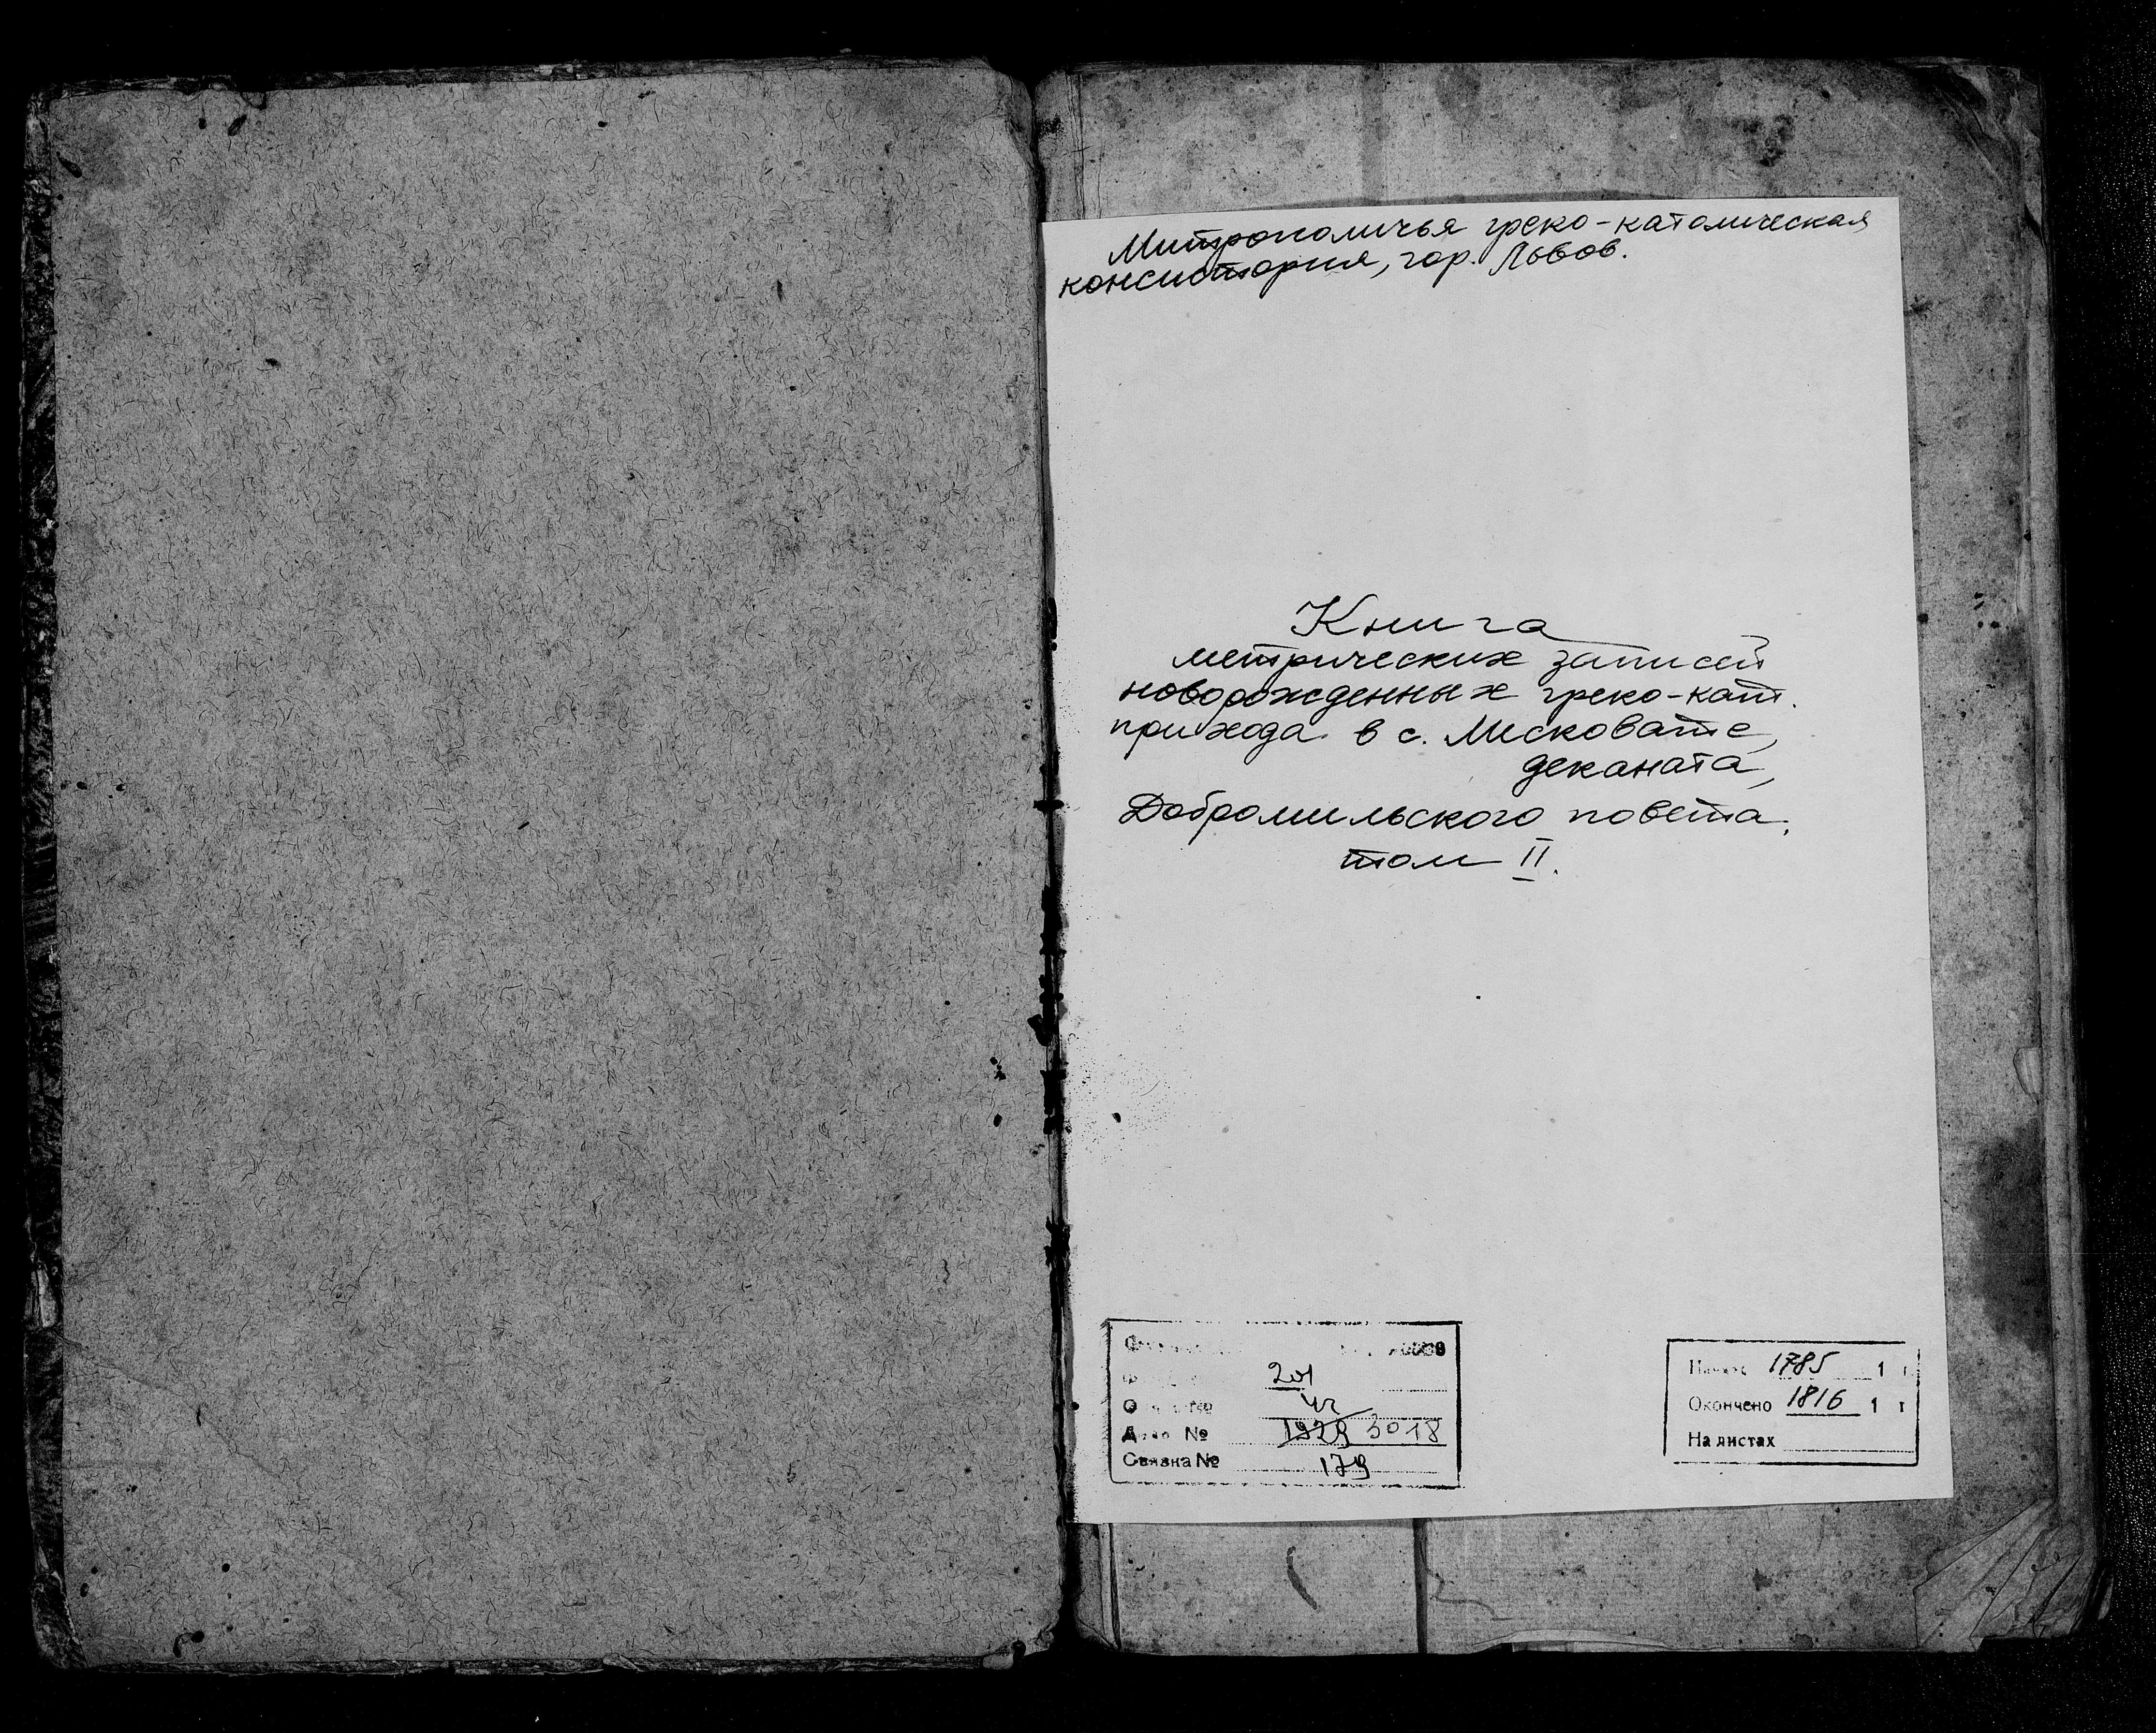 Митрополичья греко-католическая
консистория, гор. Львов.
Книга
метрических записей
новорожденных греко-кат.
прихода в с. Мисковате,
деканата,
Добромильского повета.
том II.
201
4г
Дело № 1929 3018
Связка № 179
Начато 1785 1 г
Окончено 1816 1 г
На листах